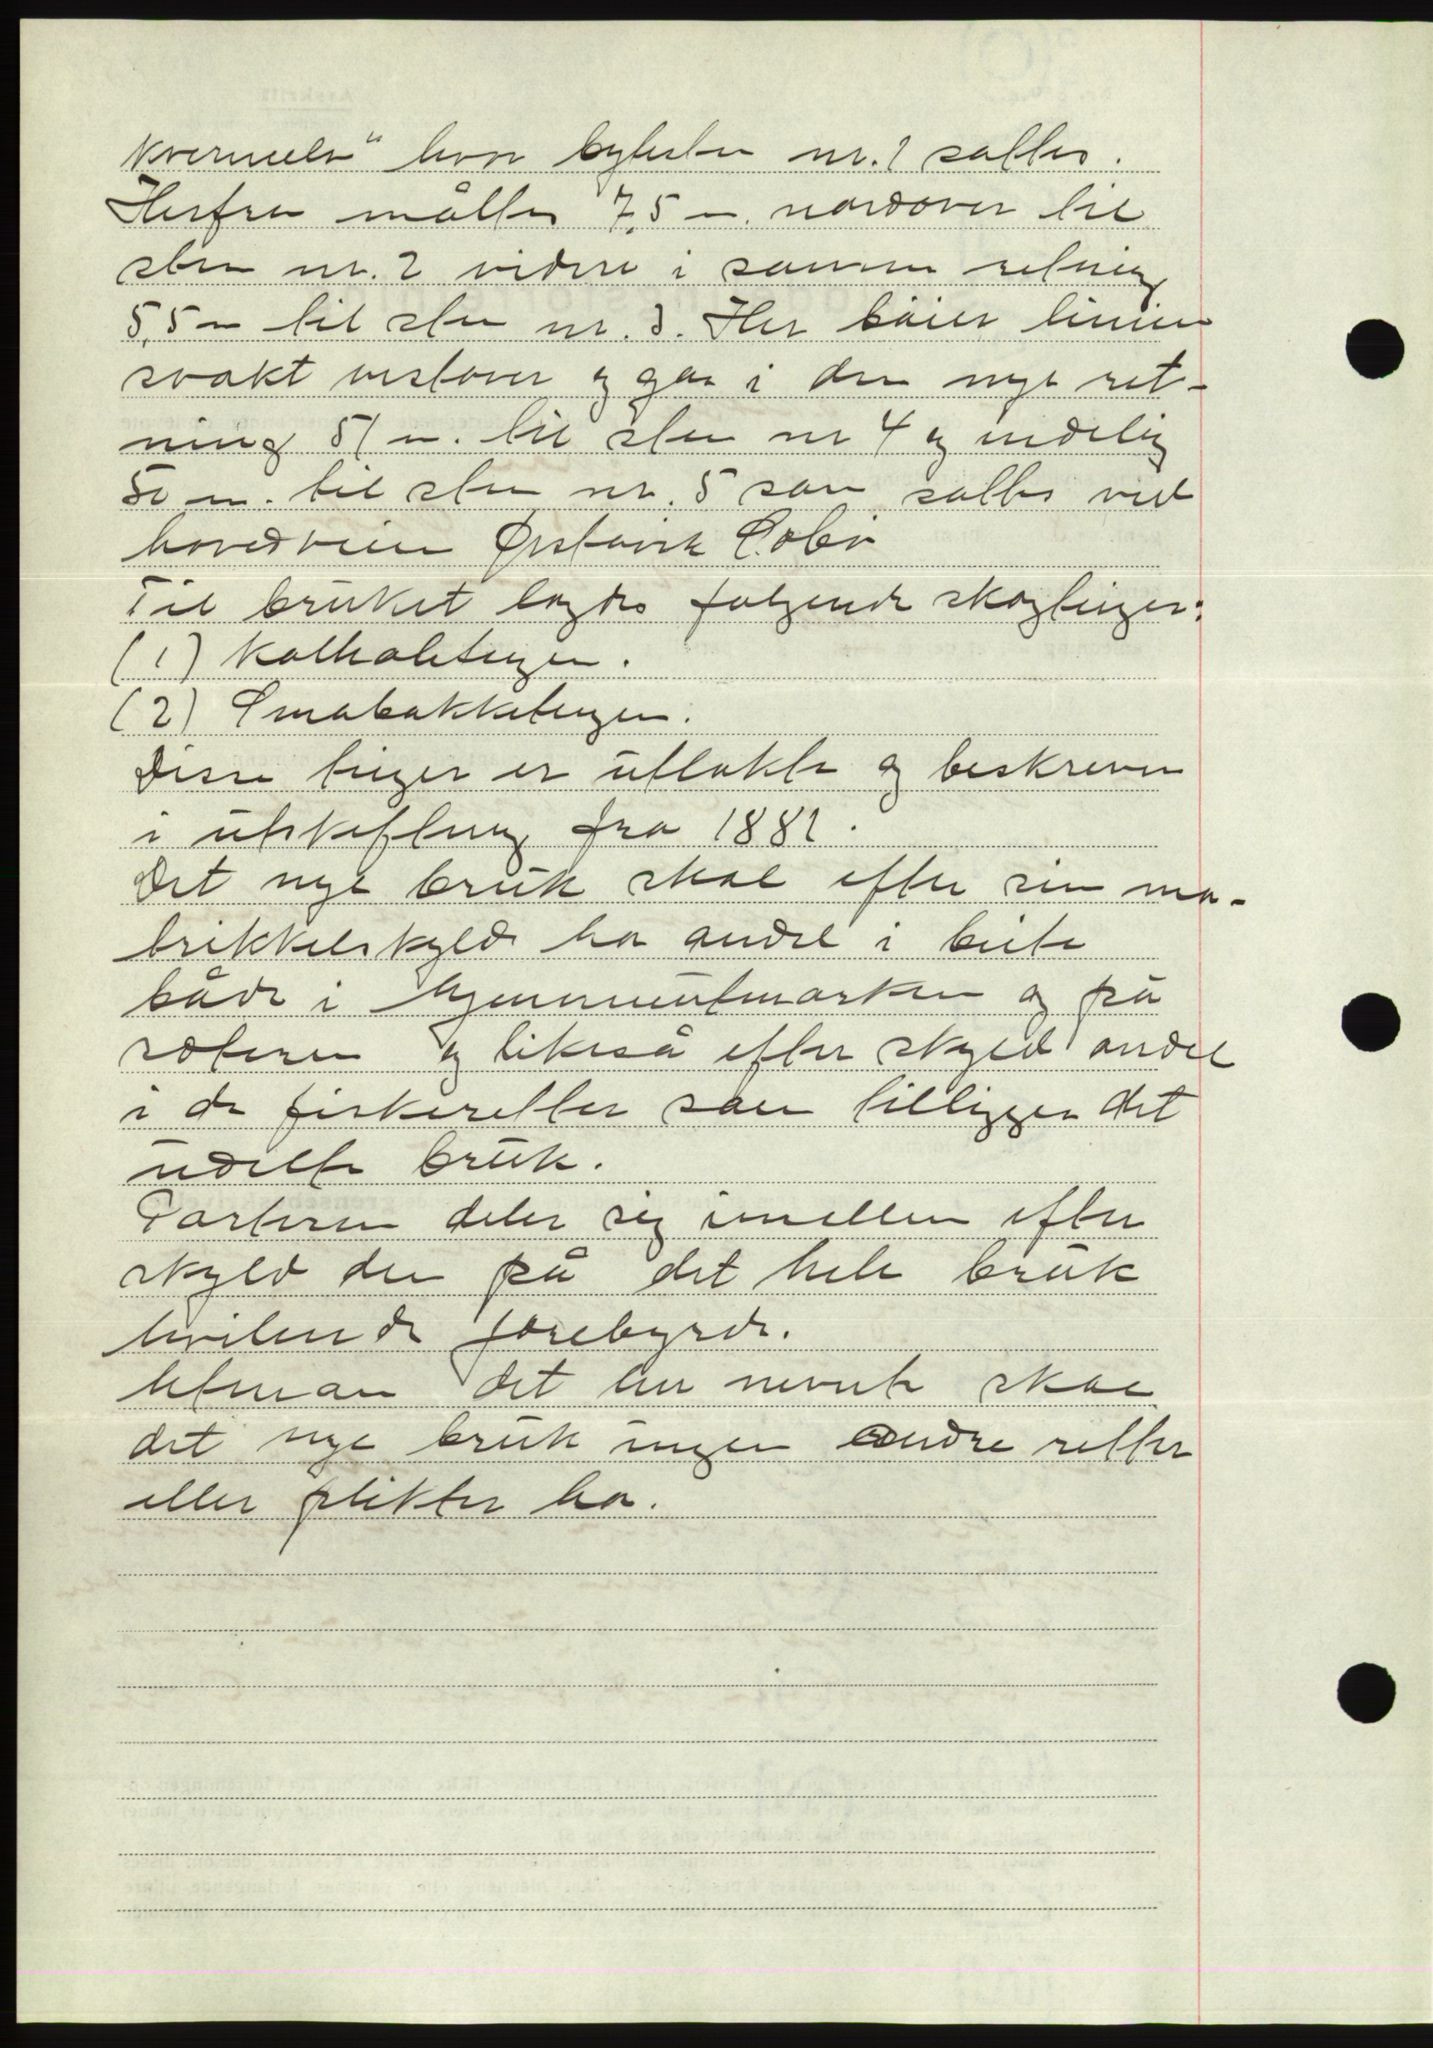 kverneelv" hvor byteste nr. 1 settes.
Herfra måltes 7,5 m. nordover til
sten nr. 2 videre i samme retning
5,5 m til sten nr. 3. Her bøier linien
svakt vestover og går i den nye ret-
ning 51 m. til sten nr 4 og endelig
50 m. til sten nr. 5 som settes ved
hovedveien Ørstavik
Til bruket lagdes følgende skogteiger:
(1) Kolholeteigen.
(2) Småbakketeigen.
Disse teiger er utlakte og beskreven
i utskiftning fra 1881.
Det nye bruk skal efter sin ma-
trikkelskyld ha andel i beite
både i hjemmeutmarken og på
sæteren og likeså efter skyld andel
i de fiskeretter som tilligger det
udelte bruk.
Parteren deler sig imellem efter
skyld den på det hele bruk
hvilende forebyrde.
Utenom det her nevnte skal
det nye bruk ingen andre retter
eller plikter ha.